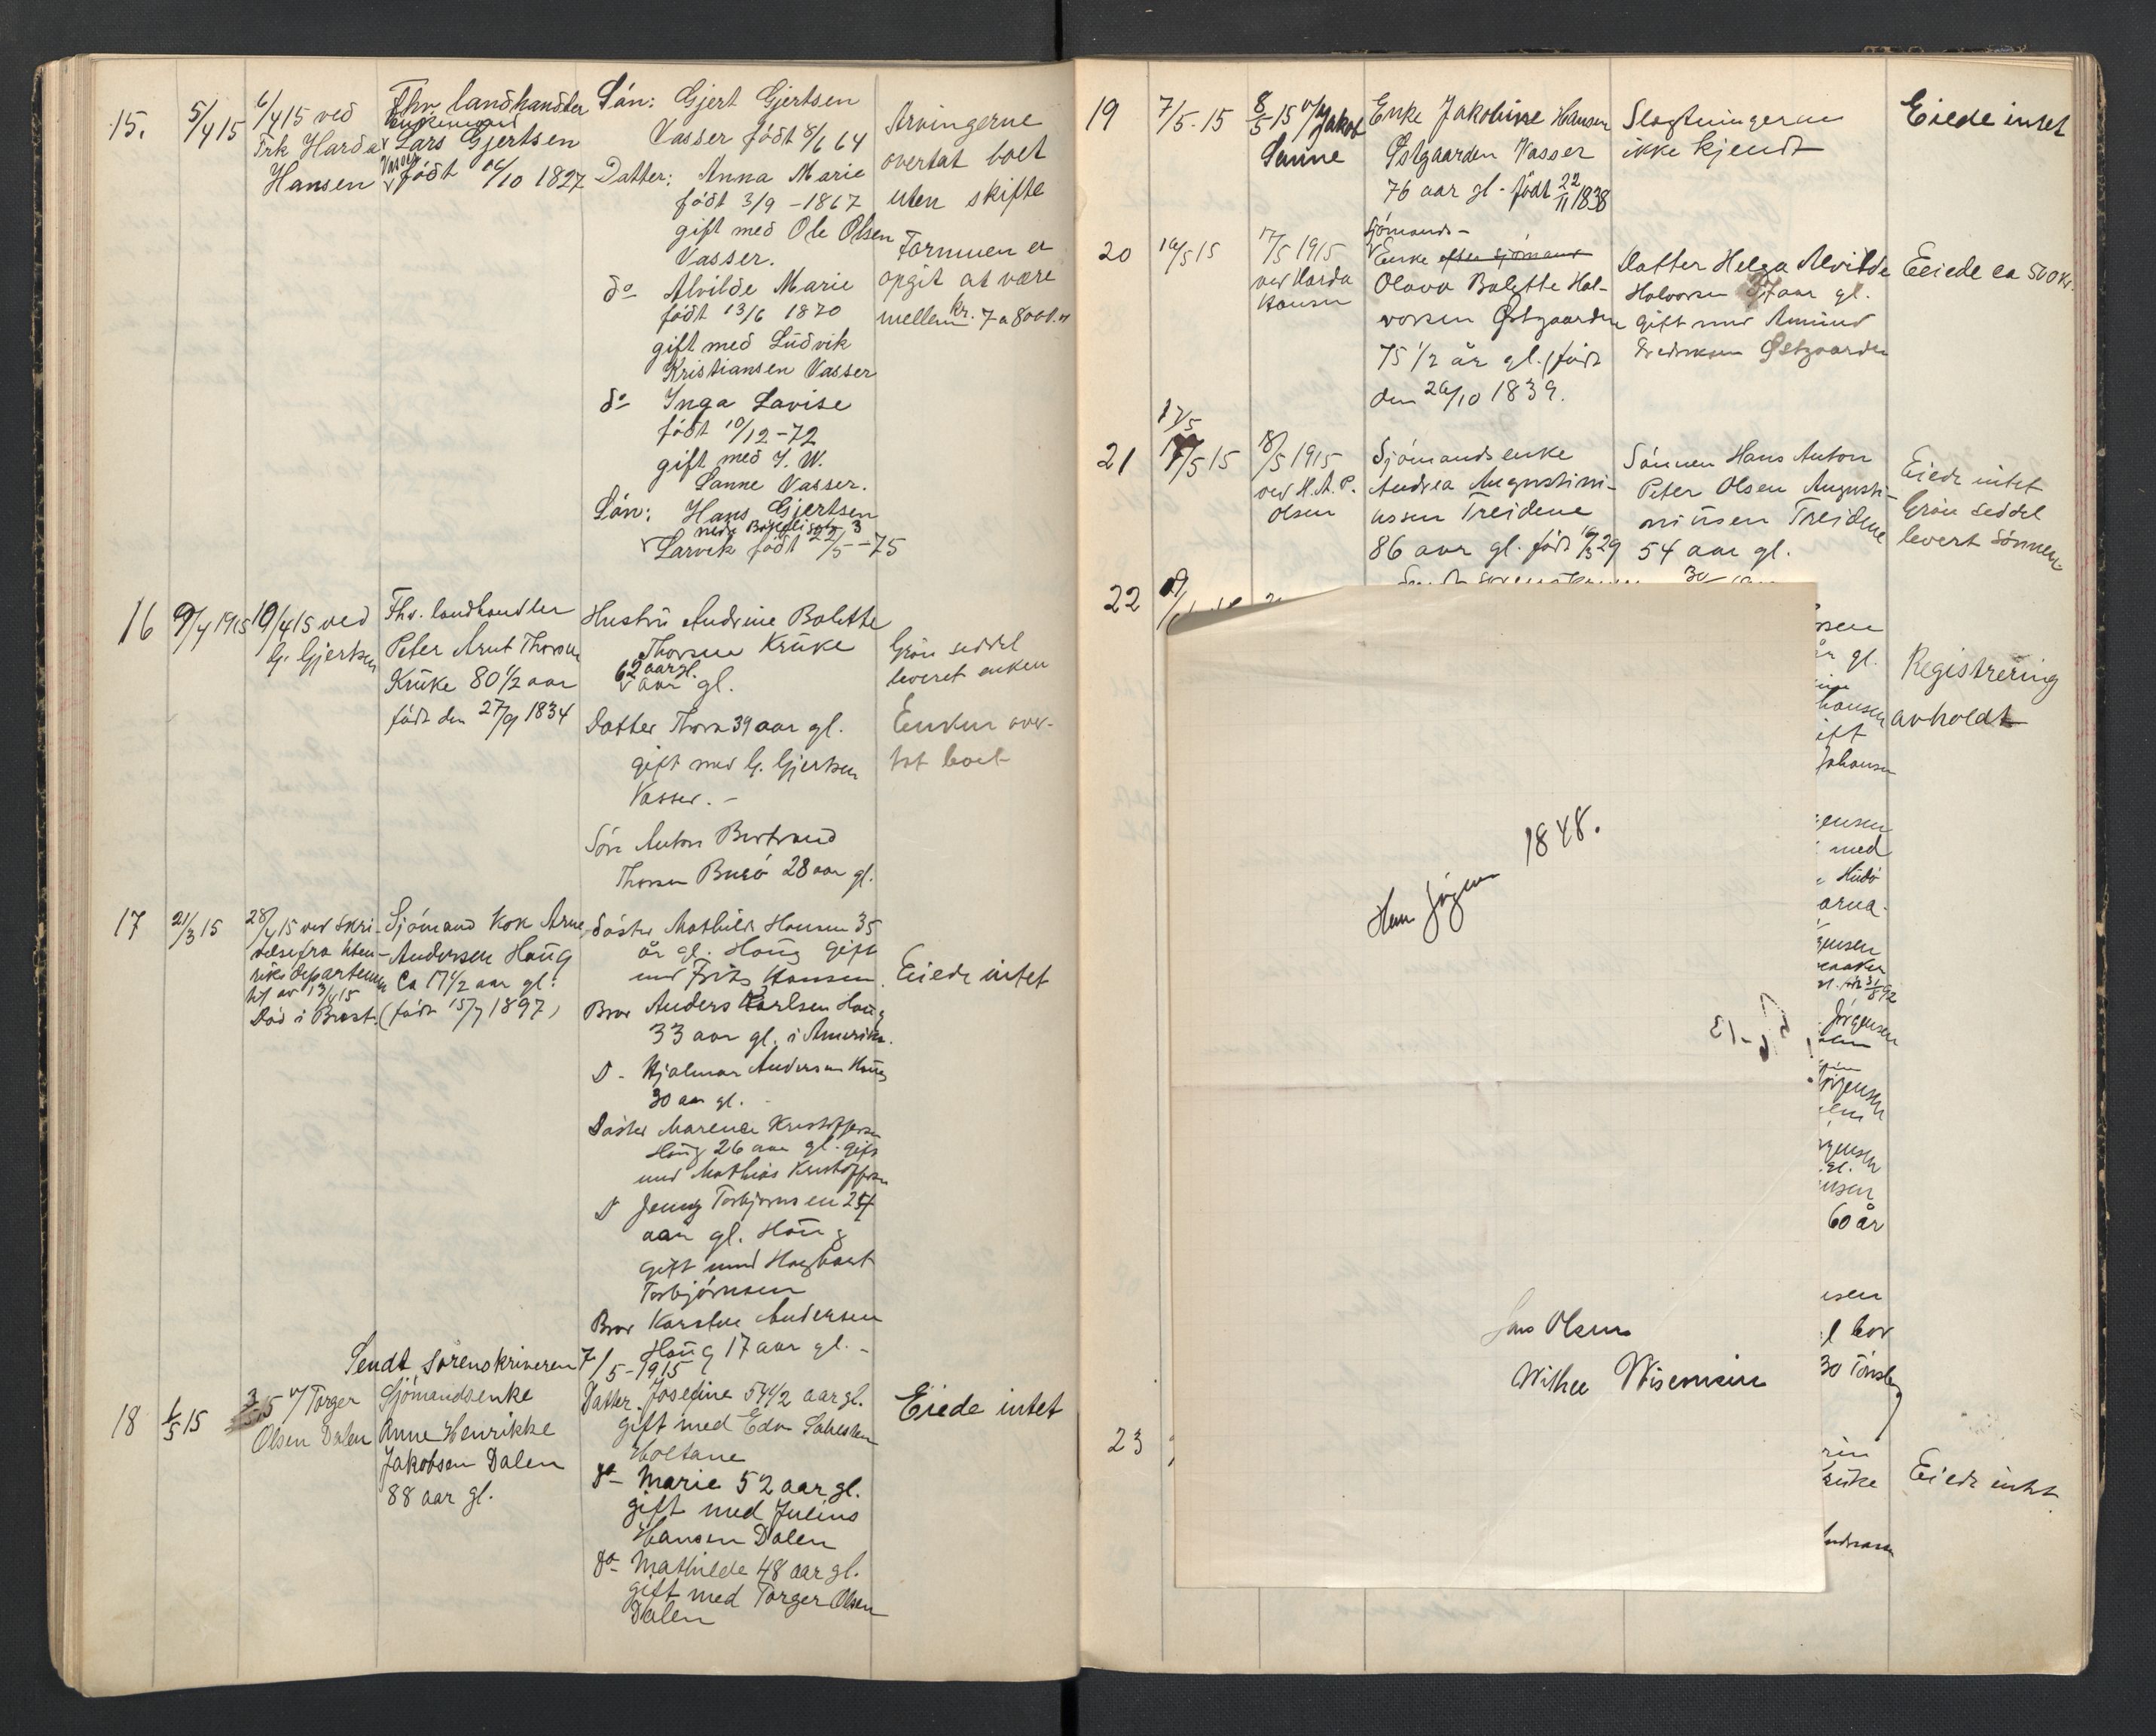 15.
5/4 15
6/4 15 ved
Frk Harda
Hansen
Fhv. landhandler
Enkemand
Lars Gjertsen
Vasser
født 16/10 1827
Sön: Gjert Gjertsen
Vasser født 8/6 64
Datter: Anna Marie
født 3/9 - 1867
gift med Ole Olsen
Vasser.
do Alvilde Marie
født 13/6 1870
gift med Ludvik
Kristiansen Vasser
do Inga Lovise
født 10/12 - 72
gift med J. W.
Sanne Vasser.
Sön: Hans Gjertsen
Larvik født 22/5 - 75
Arvingerne
overtat boet
uten skifte
Formuen er
opgit at være
mellem kr. 7 a 8000.
16
9/4 1915
10/4 15 ved
G. Gjertsen
Fhv. landhandler
Peter Arnt Thorsen
Krüke 80 1/2 aar
født den 27/9 1834
Hustrü Andrine Bolette
Thorsen Krüke
62 aar gl.
aar gl.
Datter Thora 39 aar gl.
gift med G. Gjertsen
Vasser. -
Sön Anton Bertrand
Thorsen Buerö 28 aar gl.
Grön seddel
leveret enken
Enken over-
tat boet
17
21/3 15
28/4 15 ved skri-
velse fra Uten-
riksdepartemen
tet av 13/4 15
Död i Brest.
Sjömand Kok Arne
Andersen Haüg
Ca 17 1/2 aar gl.
(født 15/7 1897)
Söster Mathilde Hansen 35
år gl. Haüg gift
med Frits Hansen.
Bror Anders Karlsen Haüg
33 aar gl. i Amerika.
D - Hjalmar Andersen Haüg
30 aar gl. -
Söster Marence Kristoffersen
Haüg 26 aar gl. gift
med Mathias Kristoffersen
D Jenny Torbjørnsen 24
aar gl. Haüg
gift med Hagbart
Torbjörnsen
Bror Karsten Andersen
Haüg 17 aar gl. -
Eiede intet
Sendt Sorenskriveren 7/5 - 1915
18
1/5 15
3/5 15 v/ Torger
Olsen Dalen
Sjömandsenke
Anne Henrikke
Jakobsen Dalen
88 aar gl.
Datter. Josefine 54 1/2 aar gl.
gift med Edv
Holtane
do - Marie 52 aar gl.
gift med Julius
Hansen Dalen
do - Mathilde 48 aar gl.
gift med Torger Olsen
Dalen
Eiede intet
19
7/5 - 15
8/5 15 v/ Jakob
Sanne
Enke Jakobine Hansen
Østgaarden Vasser
76 aar gl - født 22/11 1838
Slegtningerne
ikke kjendt
Eiede intet
20
16/5 15
17/5 1915
ved Harda
Hansen
Sjömands -
Enke efter sjömand
Olava Bolette Hal-
vorsen Østgaarden
75 1/2 år gl. (født
den 26/10 1839.
Datter Helga Alvilde
Halvorsen aar gl.
gift med Amünd
Fredriksen Østgaarden
Eeiede ca 500 kr.
21
17/5
17/5 15
18/5 1915
ved H. A. P.
Olsen
Sjömandsenke
Andrea Augustini-
ussen Treidene
86 aar gl. født 16/3 29
Sönnen Hans Anton
Peter Olsen Augusti-
niüsen Treidene
54 aar gl.
Eiede intet
Grön seddel
levert Sönnen
22
Registrering
avholdt
1848.
Hans Jörgen
Olsen
Withee Wisconsin
gl.
Johansen
med
Jörgensen
60 år
bor
30 Tönsberg
23
Eiede intet